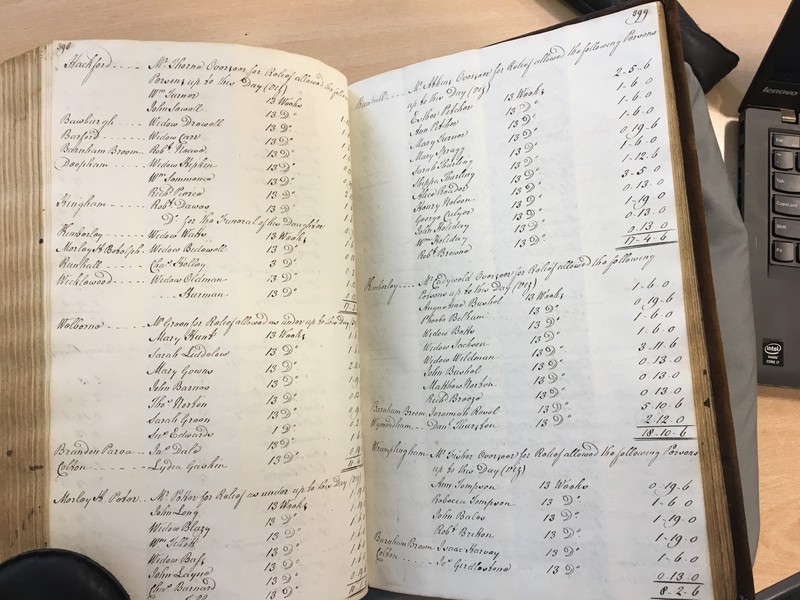 398
Hackford ---- Mr. Thorne Overseer for Relief allowed the
Persons up to this Day (Viz)
Wm. Turner 13 Weeks
John Sowell 13 Do.
Bawburgh ---- Widow Drewell 13 Do.
Barford ---- Widow Carr 13 Do.
Barnham Broom Robt. 13 Do.
Deopham ---- Widow Hipkin 13 Do.
Wm. Simmonce 13 Do.
Richd. Pearce 13 Do.
Hingham ---- Robt. Dawes 13 Do.
Do. for the Funeral of his Daughter
Kimberley ---- Widow Watts 13 Weeks
Morley St. Botolph Widow Bidewell 13 Do.
Runhall ---- Chas. 3 Do.
Wicklewood ---- Widow Oldman 13 Do.
---- Hurman 13 Do.
Welborne ---- Mr. Green for Relief allowed as under up to this Day
Mary Hunt 13 Weeks
Sarah Liddelow 13 Do.
Mary Gowns 13 Do.
John Barnes 13 Do.
Thos. Norton 13 Do.
Sarah Green 13 Do.
Edwards 1 Do.
Brandon Parva ---- Jas. Dale 13 Do.
Colton ---- Lydia Gaskin 13 Do.
Morley St. Peter --- Mr. Potter for Relief as under up to this Day
John Long 13 Weeks
Widow Blazy 13 Do.
Wm. Tillett 13 Do.
Widow Bass 13 Do.
John Layne 13 Do.
Chas. Barnard 13 Do.
399
Mr. Atkins Overseer for Relief allowed the following Persons
up to this Day (Viz)
Esther Pitcher 13 Weeks 2-5-6
Ann Pitcher 13 Do. 1-6-0
Mary Turner 13 Do. 1-6-0
Mary Bragg 13 Do. 1-6-0
Sarah Sterling 13 Do. 0.19-6
Sterling 13 Do. 1-6-0
Alice Reeder 13 Do. 1-12-6
Henry Nelson 13 Do. 3-5-0
George Culyer 13 Do. 0.13.0
John Holiday 13 Do. 1-19-0
Wm. Holiday 13 Do. 0-13-0
Robt. Browne 13 Do. 0.13-0
17-4-6
Kimberley ---- Mr. Overseer for Relief allowed the following
Persons up to this Day (Viz)
Augustine Bushel 13 Weeks 1-6-0
Phoebe Pelham 13 Do. 0.19-6
Widow Betts 13 Do. 1-6-0
Widow Jackson 13 Do. 1-6-0
Widow Wildman 13 Do. 3-11-6
John Bushel 13 Do. 0-13-0
Matthew Norton 13 Do. 0.13-0
Richd. Breeze 13 Do. 0.13-0
Barnham Broom Jeremiah Rowel 13 Do. 5-10-6
Wymondham -- Danl. Thurston 13 Do. 2-12-0
18-10-6
Wramplingham - Mr. Fisher Overseer for Relief allowed the following Persons
up to this Day (Viz)
Ann Tompson 13 Weeks 0-19-6
Rebecca Tompson 13 Do. 1-6-0
John Bales 13 Do. 1-19-0
Robt. Britton 13 Do. 1-19-0
Barnham Broom Isaac Harvey 13 Do. 1-6-0
Colton ---- Jos. Girdlestone 13 Do. 0-13-0
8-2-6
lenovo
Esc
Tab
CapsLock
Shift
Fn
intel
CORE i7